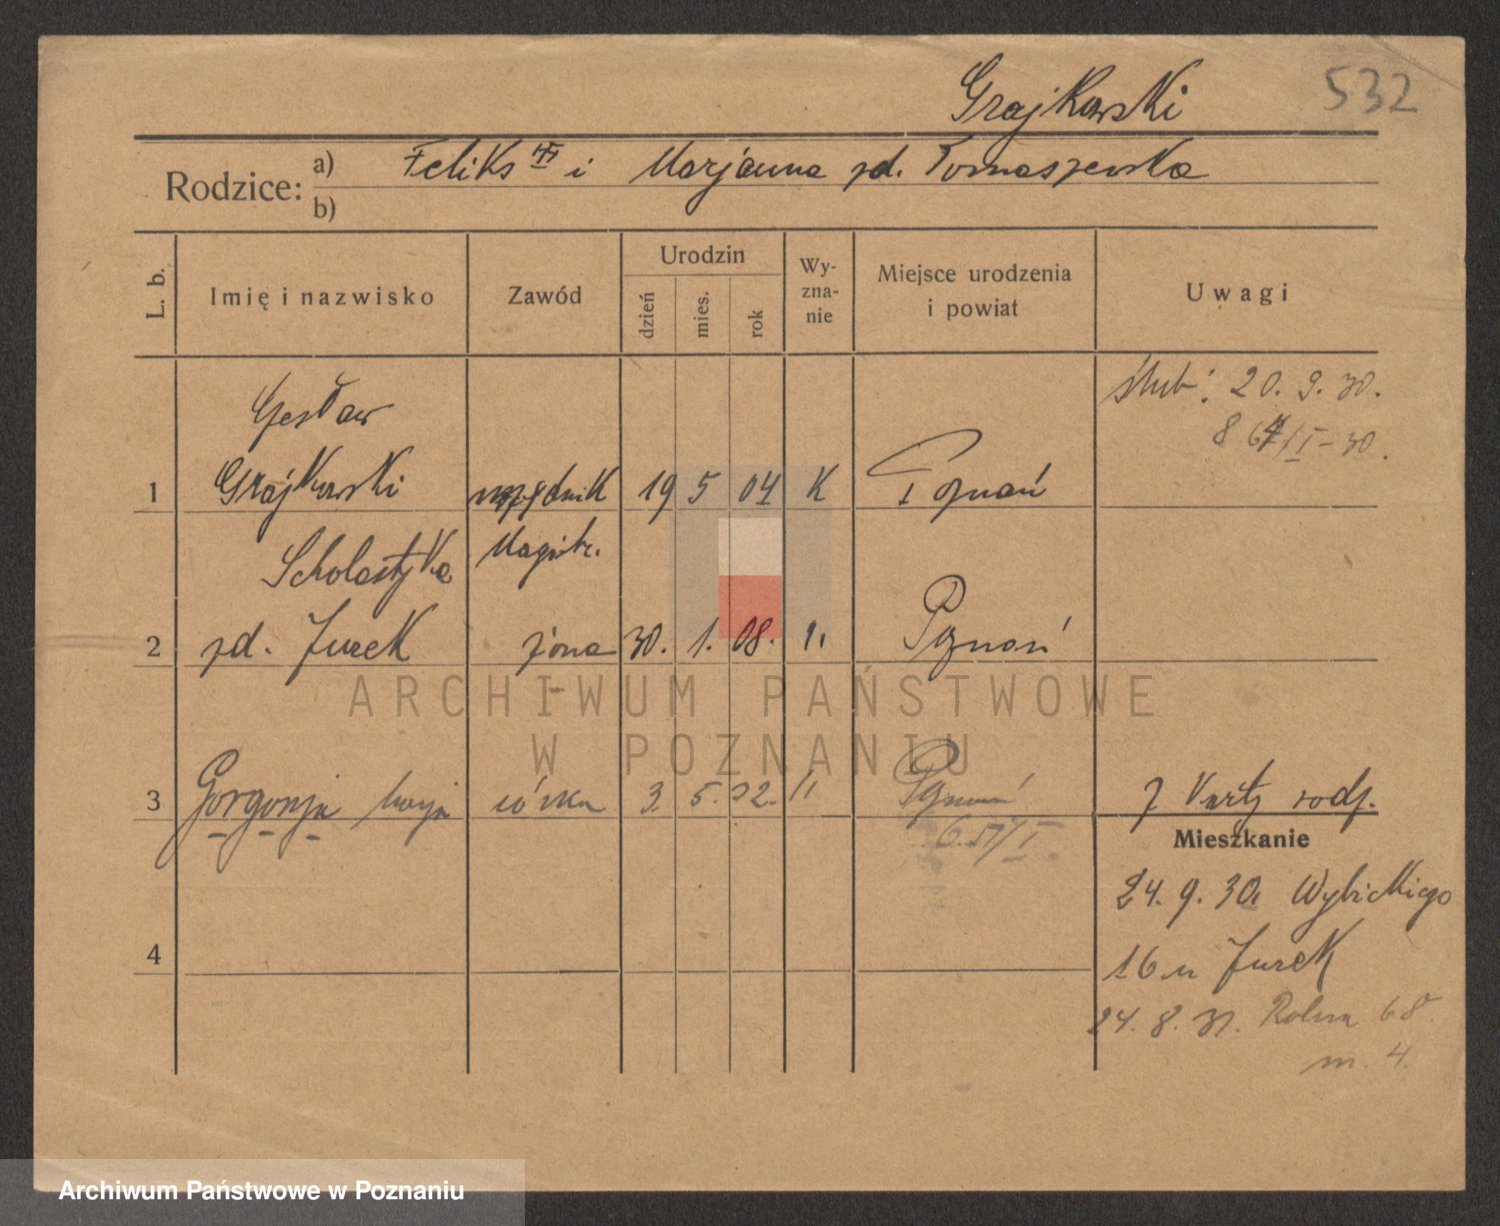 532
Grajkowski
Rodzice: a) Feliks i Marjanna zd. Tomaszewska
b)
L. b.
Imię i nazwisko
Zawód
Urodzin
dzień
mies.
rok
Wy-
zna-
nie
Miejsce urodzenia
i powiat
Uwagi
Czesław
ślub: 20. 9. 30.
1 Grajkowski urzędnik 19 5 04 K Poznań
Scholastyka Magistr.
2 zd. Jurek żona 30. 1. 08. " Poznań
ARCHIWUM PAŃSTWOWE
W POZNANIU
3 Gorgonja córka 3. 5. 32. " Poznań
z Karty rodz.
Mieszkanie
24. 9. 30. Wybickiego
4
16 u Jurek
24. 8. 31. Rolna 68
m. 4.
Archiwum Państwowe w Poznaniu